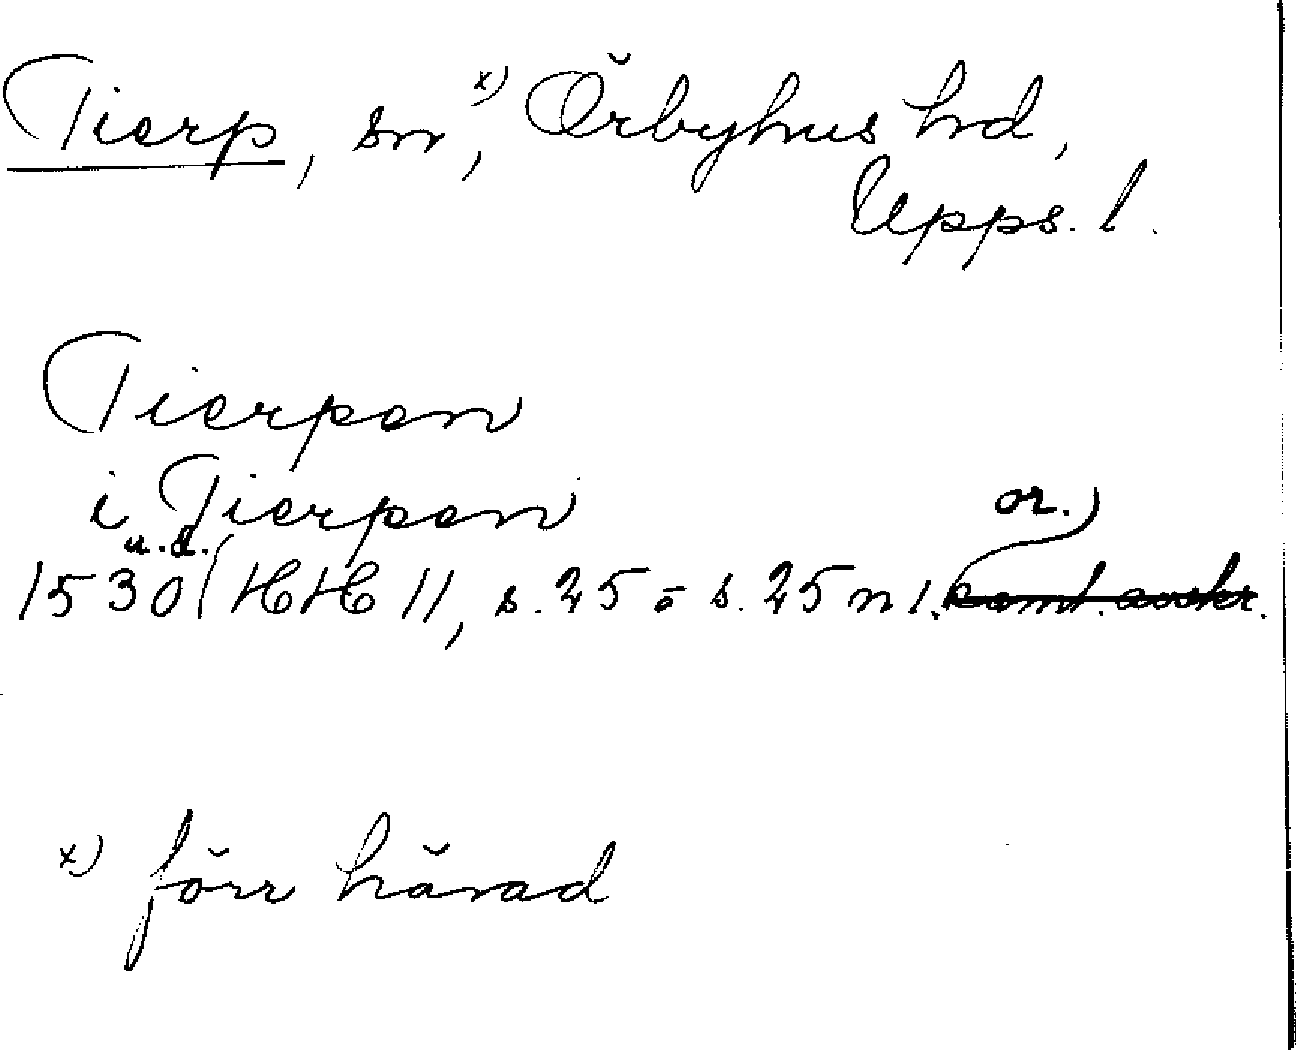 Tierp, sn,ˣ⁾ Örbyhus hd,
Upps. l.
Tierpen
i Tierpen
or.)
u.d.
1530 (HH 11, s. 25 o s. 25 n 1. samt. avskr.
x) förr härad